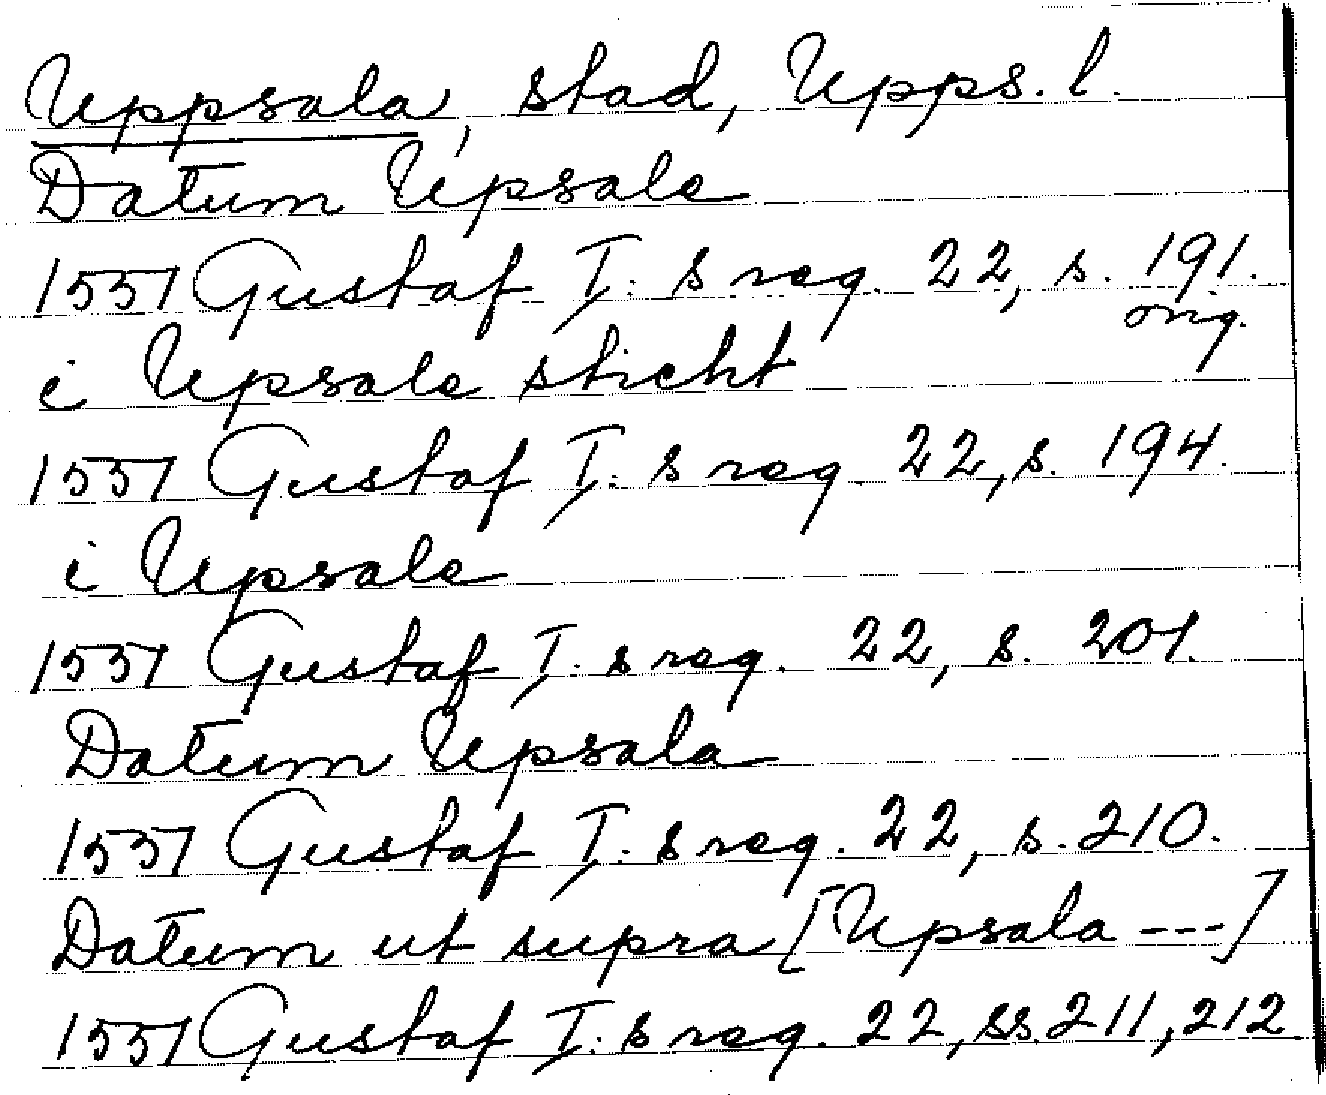 Uppsala, stad, Upps. l.
Datum Upsale
1551 Gustaf I:s reg. 22, s. 191.
orig.
i Upsale sticht
1551 Gustaf I:s reg. 22, s. 194.
i Upsale
1551 Gustaf I:s reg. 22, s. 201.
Datum Upsala
1551 Gustaf I:s reg. 22, s. 210.
Datum ut supra [Upsala ---]
1551 Gustaf I:s reg. 22, ss. 211, 212